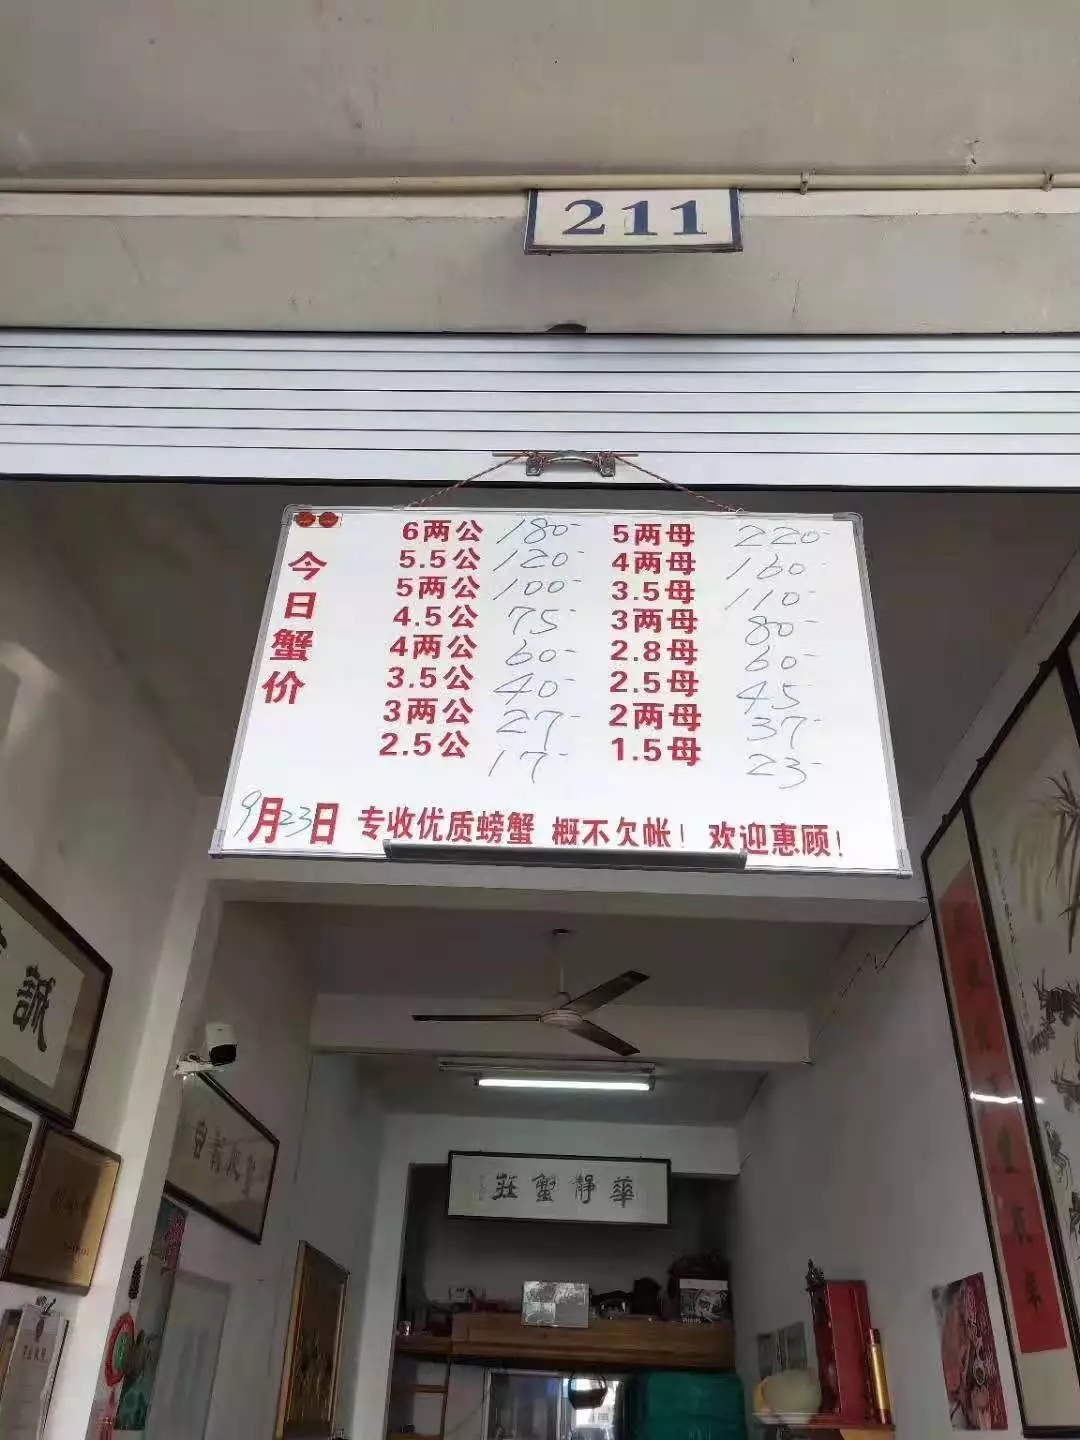 211
今日蟹价
6两公 180-
5.5公 120-
5两公 100-
4.5公 75-
4两公 60-
3.5公 40-
3两公 27-
2.5公 17-
5两母 220-
4两母 160-
3.5母 110-
3两母 80-
2.8母 60-
2.5母 45-
2两母 37-
1.5母 23-
9月23日 专收优质螃蟹 概不欠帐！ 欢迎惠顾！
誠
華靜蟹莊